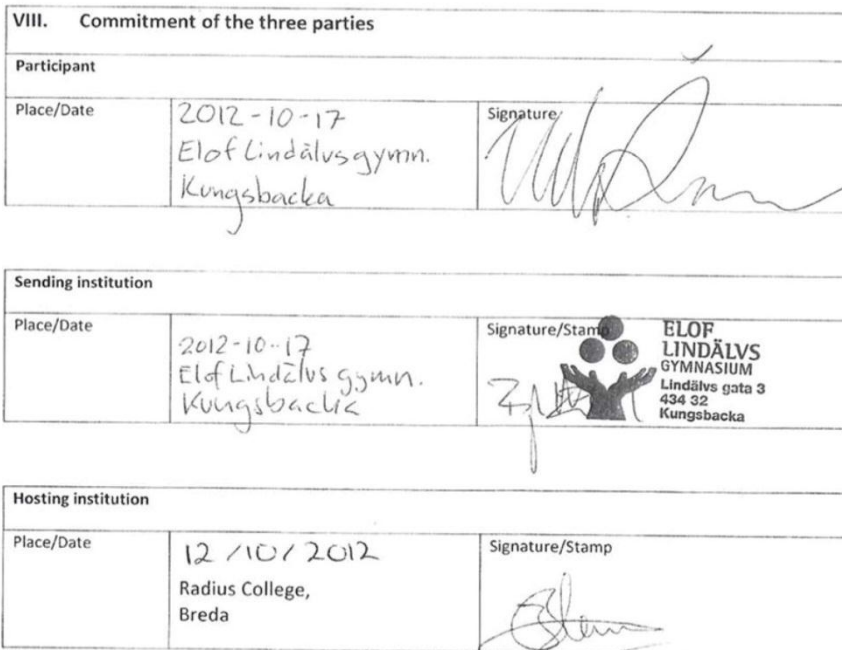 VIII. Commitment of the three parties
Participant
Place/Date
2012-10-17
Elof Lindälvsgymn.
Kungsbacka
Signature
Sending institution
Place/Date
2012-10-17
Elof Lindälvs gymn.
Kungsbacka
Signature/Stamp
ELOF
LINDÄLVS
GYMNASIUM
Lindälvs gata 3
434 32
Kungsbacka
Hosting institution
Place/Date
12/10/2012
Radius College,
Breda
Signature/Stamp